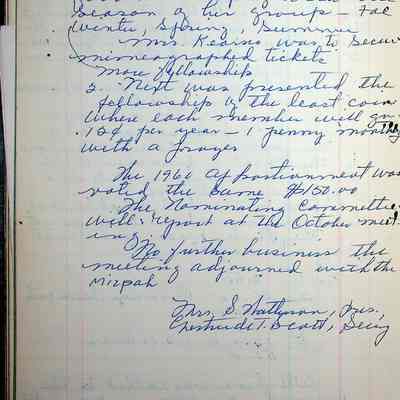 Season of her group - Fall
Winter, Spring, Summer
Mrs. Kearns was to secure
mimeographed tickets
more fellowship
2. Next was presented the
fellowship of the least coin
where each member will give
12¢ per year - 1 penny monthly
with a prayer
The 1960 apportionment was
voted the same $150.00
The Nominating Committee
will report at the October meet
ing
No further business the
meeting adjourned with the
Mizpah
Mrs. S. Pres.,
Gertrude T. Scott, Secy